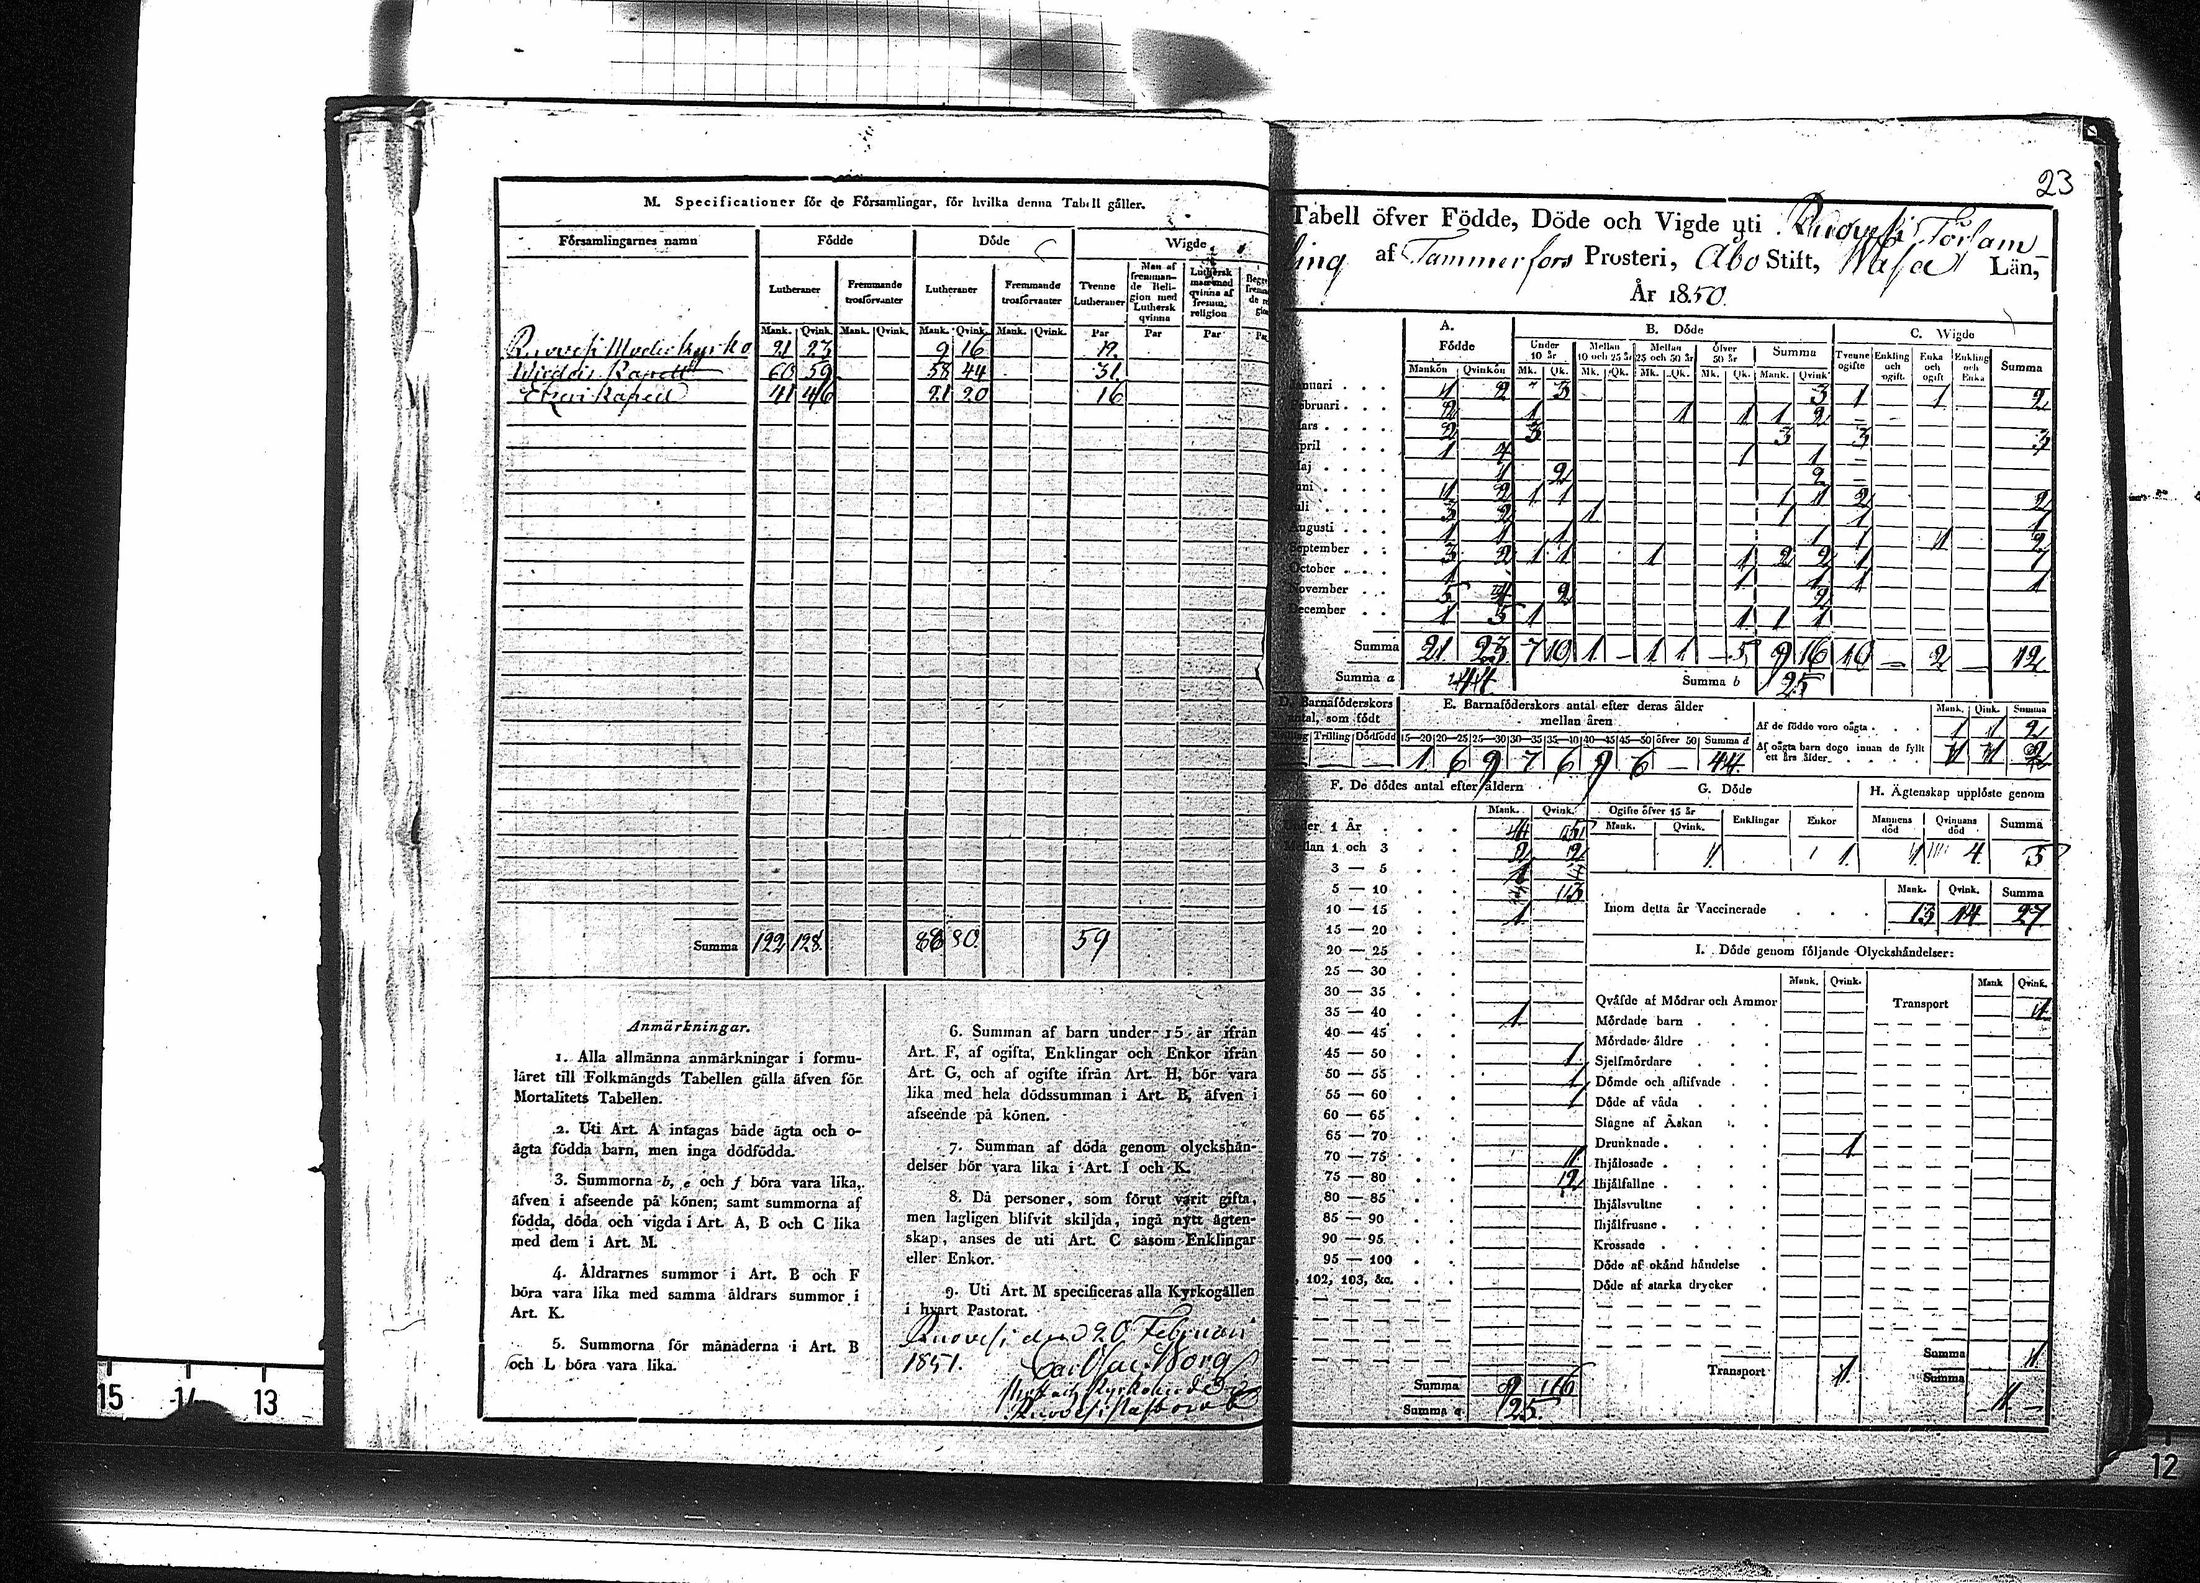 M. Specificationer för de Församlingar, för hvilka denna Tabell gäller.
Församlingarnes namn Födde Döde Wigde
Lutheraner Fremmande trosförvanter Lutheraner Fremmande trosförvanter Tvenne Lutheraner Man af fremmande Religion med Luthersk qvinna Luthersk man med qvinna af fremm. religion
Mank. Qvink. Mank. Qvink. Mank. Qvink. Mank. Qvink. Par Par Par
Ruovesi Moderkyrko 21 23 9 16 12.
Wirdois Kapell 60 59 58 44 31.
Etseri Kapell 41 46 21 20 16
Summa 122 128 88 80 59
Anmärkningar.
1. Alla allmänna anmärkningar i formu-
läret till Folkmängds Tabellen gälla äfven för
Mortalitets Tabellen.
2. Uti Art. A intagas både ägta och o-
ägta födda barn, men inga dödfödda.
3. Summorna b, e och f böra vara lika,
äfven i afseende på könen; samt summorna af
födda, döda och vigda i Art. A, B och C lika
med dem i Art. M.
4. Åldrarnes summor i Art. B och F
böra vara lika med samma åldrars summor i
Art. K.
5. Summorna för månaderna i Art. B
och L böra vara lika.
6. Summan af barn under 15 år ifrån
Art. F, af ogifta, Enklingar och Enkor ifrån
Art. G, och af ogifte ifrån Art. H, bör vara
lika med hela dödssumman i Art. B, äfven i
afseende på könen.
7. Summan af döda genom olyckshän-
delser bör vara lika i Art. I och K.
8. Då personer, som förut varit gifta,
men lagligen blifvit skiljda, ingå nytt ägten-
skap, anses de uti Art. C såsom Enklingar
eller Enkor.
9. Uti Art. M specificeras alla Kyrkogällen
i hvart Pastorat.
Ruovesi den 20 Februari
1851.
23
Tabell öfver Födde, Döde och Vigde uti Ruovesi Försam
ling af Tammerfors Prosteri, Åbo Stift, Wasa Län,
År 1850.
A. Födde B. Döde C. Wigde
Under 10 år Mellan 10 och 25 år Mellan 25 och 50 år öfver 50 år Summa Tvenne ogifte Enkling och ogift. Enka och ogift Enkling och Enka Summa
Mankön Qvinkön Mk. Qk. Mk. Qk. Mk. Qk. Mk. Qk. Mank. Qvink.
Januari 1 2 3 3 1 1 2
Februari 2 1 1 1 1 2
Mars 2 3 3 3 3
April 1 1 1
Maj 1 2 2
Juni 2 1 1 1 1 2 2
Juli 3 2 1 1 1 1
Augusti 1 1 1 1 1 1 2
September 3 2 1 1 1 1 2 2 1 1
October 1 1 1 1 1
November 5 4 2 2
December 1 5 1 1 1 1
Summa 21 23 7 10 1 – 1 1 – 5 9 16 10 – 2 – 12
Summa a 44 Summa b 25
D. Barnaföderskors antal, som födt
Trilling Dödfödd
E. Barnaföderskors antal efter deras ålder mellan åren
15—20 20—25 25—30 30—35 35—40 40—45 45—50 öfver 50 Summa d
1 6 9 7 6 9 6 – 44.
Mank. Qink. Summa
Af de födde voro oägta 1 1 2
Af oägta barn dogo innan de fyllt ett års ålder 1 1 2
F. De dödes antal efter åldern
Mank. Qvink.
Under 1 År
Mellan 1 och 3
3 — 5
5 — 10
10 — 15 1
15 — 20
20 — 25
25 — 30
30 — 35
35 — 40 1
40 — 45
45 — 50 1
50 — 55 1
55 — 60 1
60 — 65
65 — 70
70 — 75 1
75 — 80 2
80 — 85
85 — 90
90 — 95
95 — 100
102, 103, &c.
Summa 9 16
Summa 25.
G. Döde
Ogifte öfver 15 år Enklingar Enkor
Mank. Qvink.
1 1
H. Ägtenskap upplöste genom
Mannens död Qvinnans död Summa
1 4 5
Mank. Qvink. Summa
Inom detta år Vaccinerade 13 14 27
I. Döde genom följande Olyckshändelser:
Mank. Qvink. Mank Qvink.
Qväfde af Mödrar och Ammor
Transport 1
Mördade barn
Mördade äldre
Sjelfmördare
Dömde och aflifvade
Döde af våda
Slagne af Åskan
Drunknade 1
Ihjälosade
Ihjälfallne
Ihjälsvultne
Ihjälfrusne
Krossade
Döde af okänd händelse
Döde af starka drycker
Transport 1
Summa 1
Summa 1 –
15 14 13
12